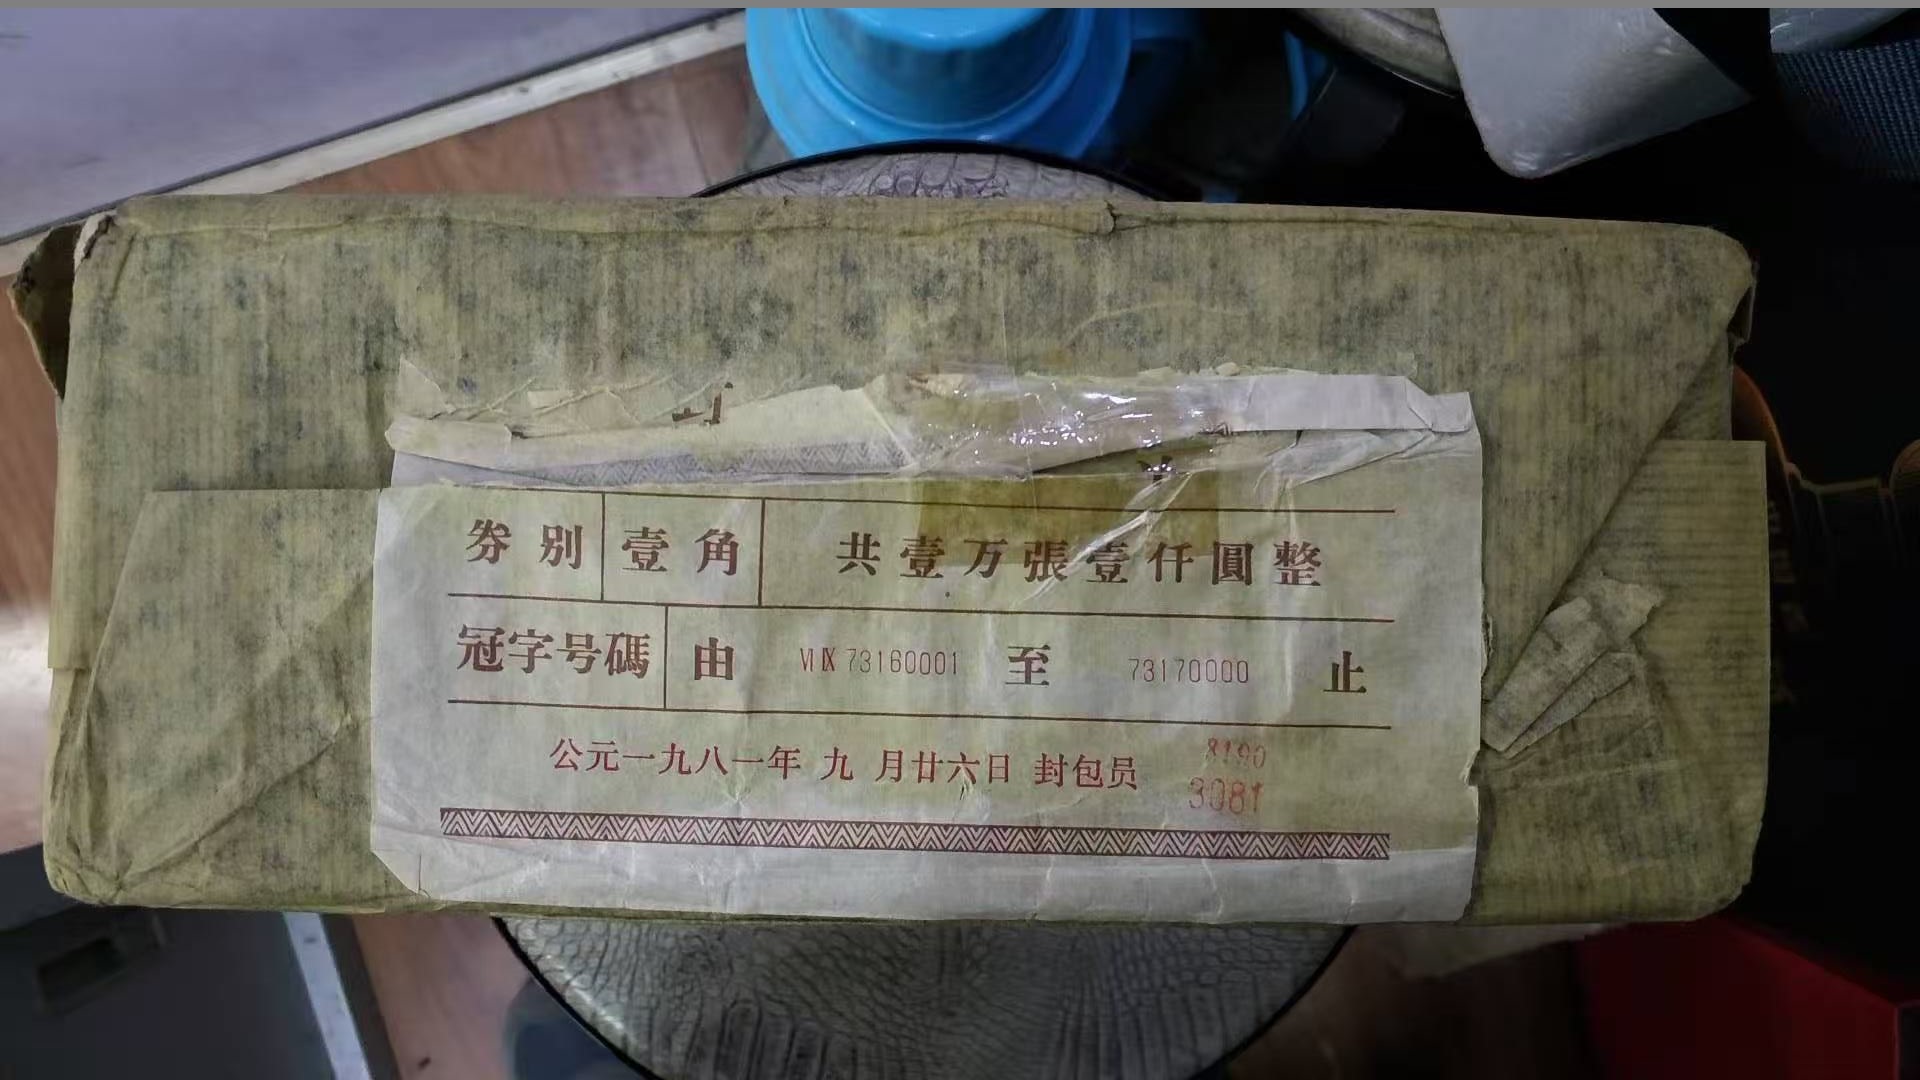 券别 壹角 共壹万張壹仟圓整
冠字号碼 由 VI IX 73160001 至 73170000 止
公元一九八一年 九 月廿六日 封包员 8190
3081